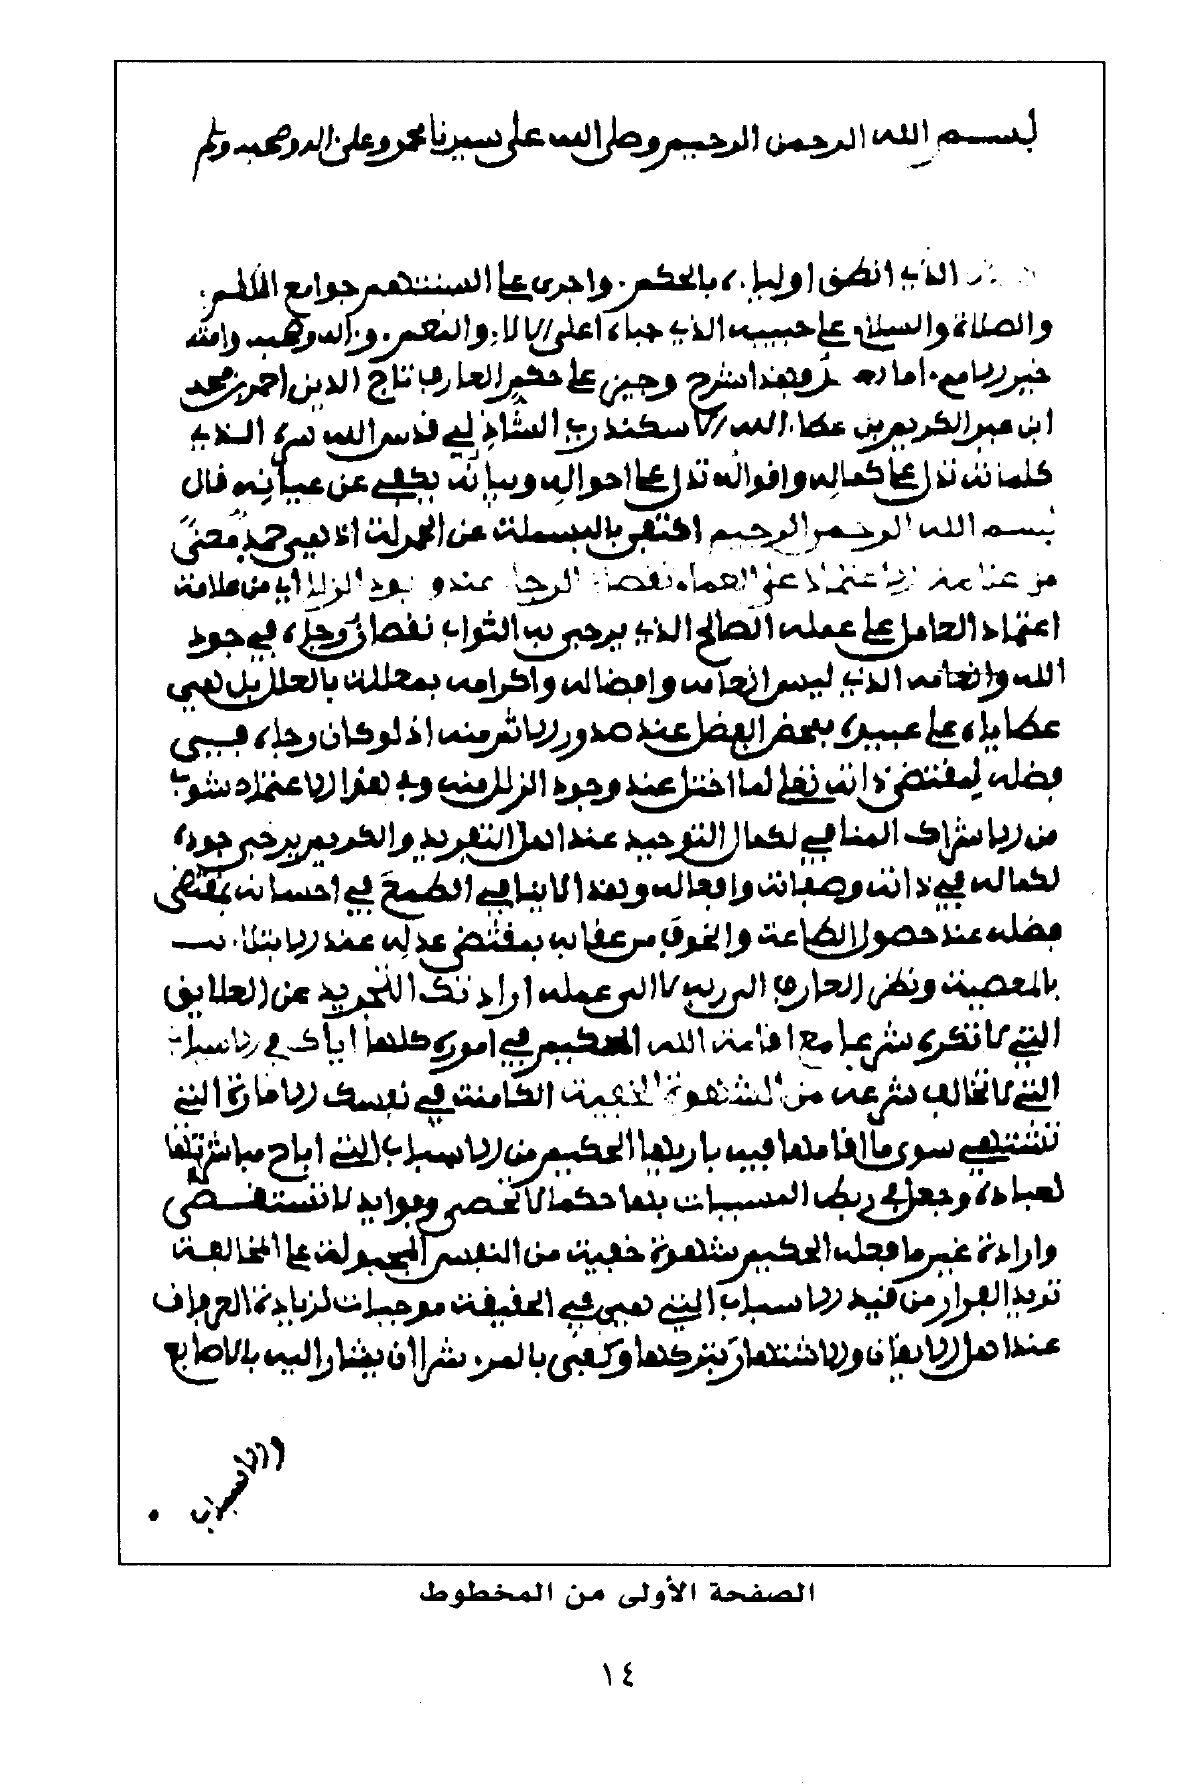 بسم الله الرحمن الرحيم وصلى الله على سيدنا محمد وعلى اله وصحبه وسلم
الذي انطق اولياءه بالحكم. واجرى على السنتهم جوامع الكلم.
والصلاة والسلام على حبيبه الذي حباه اعلى الالاء والنعم. واله وصحبه وامته
خير الامم. اما بعد فهذا شرح وجيز على حكم العارف تاج الدين احمد بن محمد
ابن عبد الكريم بن عطاء الله الاسكندري الشاذلي قدس الله سره الذي
كلماته تدل على كماله واقواله تدل على احواله وبيانه يكفي عن عيانه قال
بسم الله الرحمن الرحيم اكتفى بالبسملة عن الحمدلة اذ هي حمد معنىً
من علامة الاعتماد على العمل نقصان الرجاء عند وجود الزلل اي من علامة
اعتماد العامل على عمله الصالح الذي يرجى به الثواب نقصان رجاءه في جود
الله وانعامه الذي ليس انعامه وافضاله واكرامه بمعللة بالعلل بل هي
عطاياه على عبيده بمحض الفضل عند صدور الاثم منه اذ لو كان رجاءه في
فضله لمقتضى ذاته تعلى لما اختل عند وجود الزلل منه وفي هذا الاعتماد شوب
من الاشراك المنافي لكمال التوحيد عند اهل التفريد والكريم يرجى جوده
لكماله في ذاته وصفاته وافعاله وهذا لا ينافي الطمع في احسانه بمقتضى
فضله عند حصول الطاعة والخوف من عقابه بمقتضى عدله عند الابتلاء
بالمعصية ونظر العارف الى ربه لا الى عمله ارادتك التجريد عن العلايق
التي لا تنكرك شرعا مع اقامة الله الحكيم في اموره كلها اياك في الاسباب
التي لا تخالف شرعه من الشهوة الخفية الكامنة في نفسك الامارة التي
تشتهي سوى ما اقامها فيه باريها الحكيم من الاسباب التي اباح مباشرتها
لعباده وجعل في ربط المسببات بها حكما لا تحصى وفوايد لا تستقصى
وارادة غير ما فعله الحكيم شهوة خفية من النفس المجبولة على المخالفة
تريد الفرار من قيد الاسباب التي هي في الحقيقة موجبات لزيادة العرفان
عند اهل الايقان والاشتهار بتركها وكفى بالمرء شرا ان يشار اليه بالاصابع
الصفحة الأولى من المخطوط
١٤